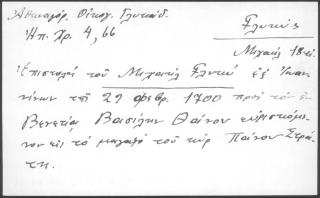 Ἀθηναγόρ. Οἰκογ. Γλυκέων
Ἠπ. Χρ. 4, 66
Γλυκύς
Μιχαὴλ 18 αἰ.
Ἐπιστολὴ τοῦ Μιχαὴλ Γλυκύ ἐξ Ἰωαν-
νίνων τῇ 29 Φεβρ. 1700 πρὸς τὸν ἐν
Βενετίᾳ Βασίλην Θάνου εὑρισκόμε-
νον εἰς τὸ μαγαζὶ τοῦ κὺρ Πάνου Στρά-
τη.